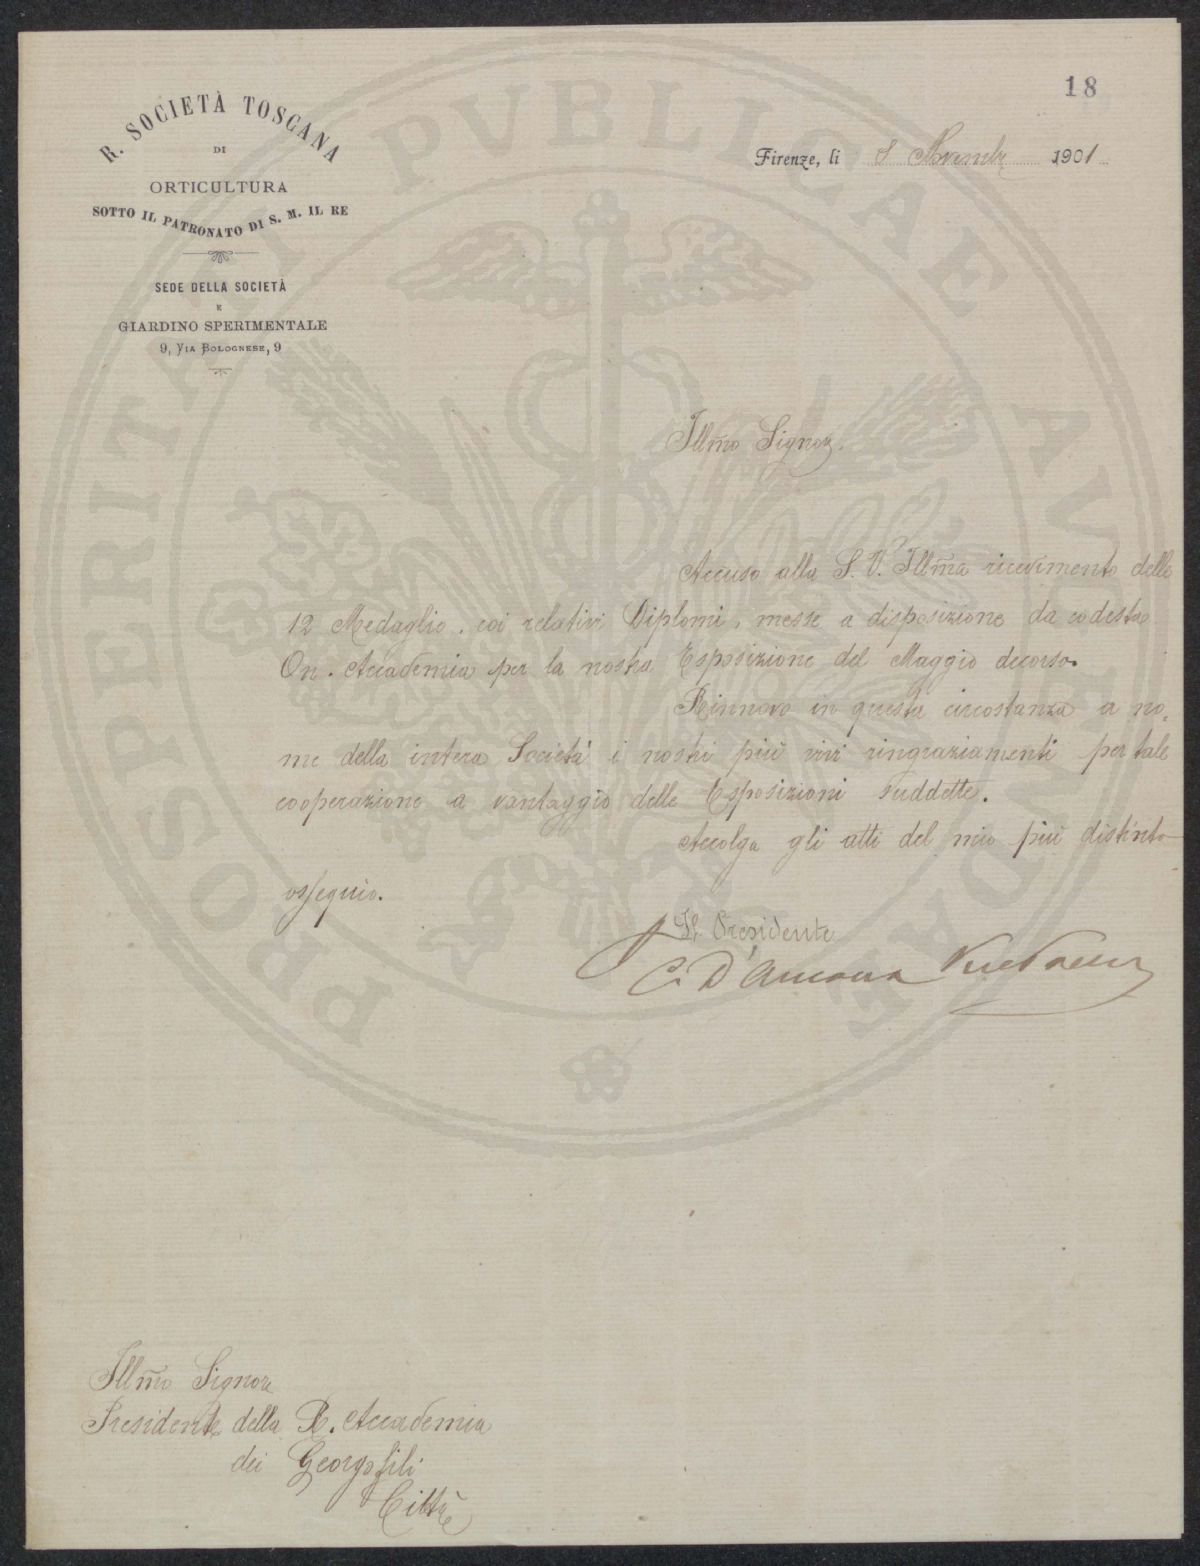 18
R. SOCIETÀ TOSCANA
DI
ORTICULTURA
SOTTO IL PATRONATO DI S. M. IL RE
SEDE DELLA SOCIETÀ
E
GIARDINO SPERIMENTALE
9, VIA BOLOGNESE, 9
Firenze, li 8 Novembre 1901
Illm̃o Signore.
Accuso alla S. V. Illm̃a ricevimento delle
12 Medaglie, coi relativi Diplomi, messe a disposizione da codesta
On. Accademia per la nostra Esposizione del Maggio decorso.
Rinnovo in questa circostanza a no-
me della intera Società i nostri più vivi ringraziamenti per tale
cooperazione a vantaggio delle Esposizioni suddette.
Accolga gli atti del mio più distinto
ossequio.
Il Presidente
C. D'Ancona
Illm̃o Signore
Presidente della R. Accademia
dei Georgofili
Città
PROSPERITATI PVBLICAE AVGENDAE